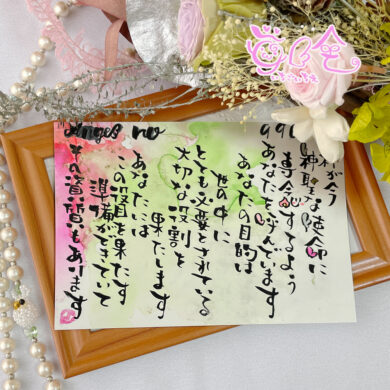 神聖な使命に
専念するよう
あなたを呼んでいます
あなたの目的は
世の中に
とても必要とされている
大切な役割を
果たします
あなたには
この役目を果たす
準備ができていて
その資質もあります